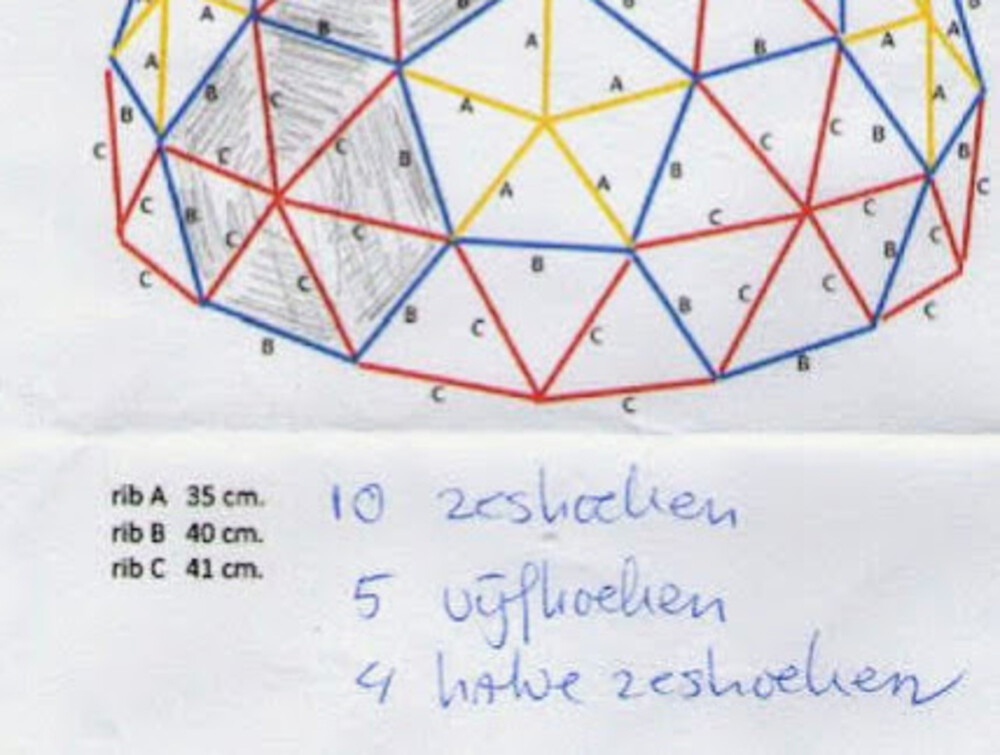 A A B B B
A A B A
B B C A A C B A
C C C B C B C
C B C C A A C C B C
C C B B C C
B B C C B C C B C
C C
rib A 35 cm.
rib B 40 cm.
rib C 41 cm.
10 zeshoeken
5 vijfhoeken
4 halve zeshoeken